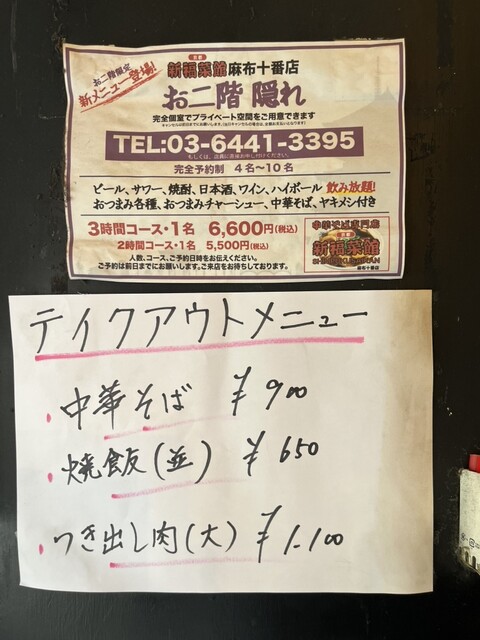 お二階限定
新メニュー登場!
京都
新福菜館 麻布十番店
お二階 隠れ
完全個室でプライベート空間をご用意できます
TEL:03-6441-3395
もしくは、店員に直接お申し付けください。
完全予約制 4名〜10名
ビール、サワー、焼酎、日本酒、ワイン、ハイボール 飲み放題!
おつまみ各種、おつまみチャーシュー、中華そば、ヤキメシ付き
3時間コース・1名 6,600円(税込)
2時間コース・1名 5,500円(税込)
人数、コース、ご予約日時をお伝えください。
ご予約は前日までにお願いします。ご来店をお待ちしております。
中華そば専門店
京都
新福菜館
SHINPUKUSAIKAN
麻布十番店
テイクアウトメニュー
・中華そば ¥900
・焼飯(並) ¥650
・つき出し肉(大) ¥1.100